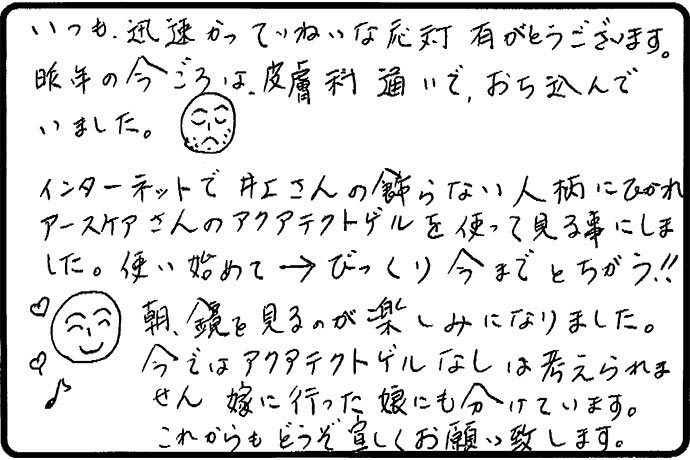 いつも、迅速かつていねいな応対 有がとうございます。
昨年の今ごろは、皮膚科通いで、おち込んで
いました。
インターネットで 井工さんの飾らない人柄にひかれ
アースケアさんのアクアテクトゲルを使って見る事にしま
した。使い始めて→びっくり今までとちがう!!
朝、鏡を見るのが楽しみになりました。
今ではアクアテクトゲルなしは考えられま
せん 嫁に行った娘にも分けています。
これからもどうぞ宜しくお願い致します。